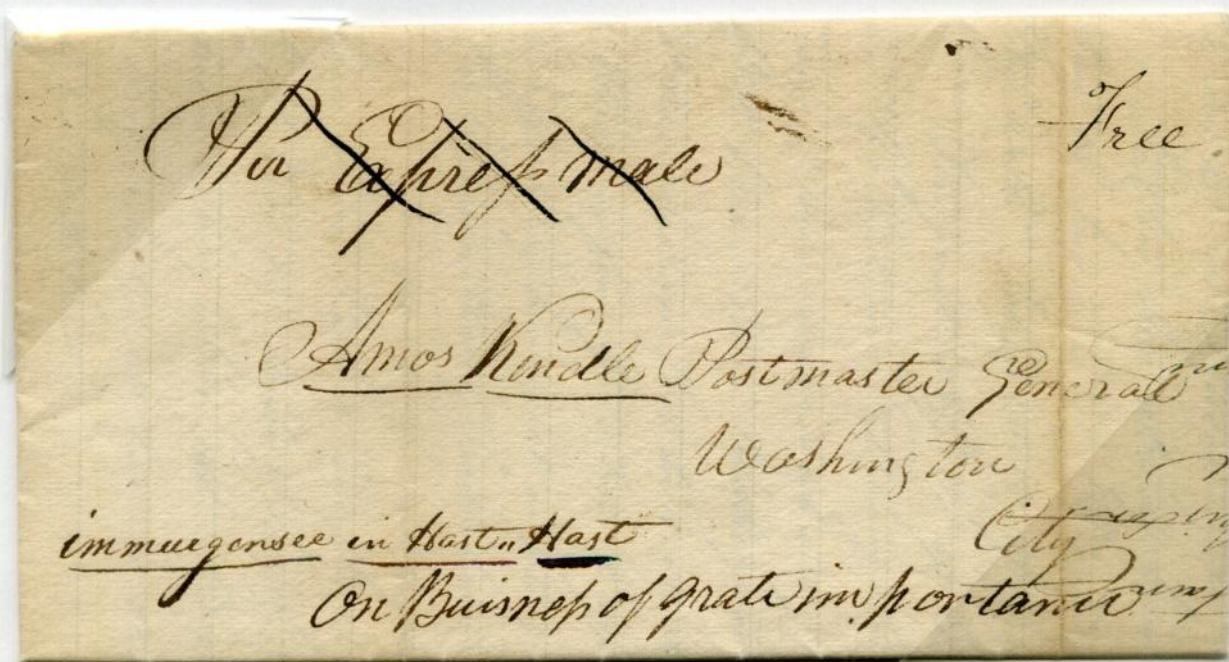 Free
Pur Express Male
Amos Kendle Postmaster Generale
Washington
City
immeergensee in Hast" Hast
On Buisness of grate importance